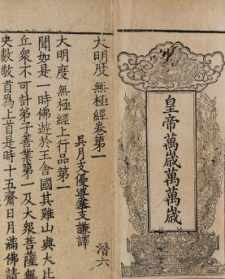 皇帝萬歲萬萬歲
大明度無極經卷第一 潛六
吳月支優婆塞支謙譯
大明度無極經上行品第一
聞如是一時佛遊於王舍國其雞山與大比
丘衆不可計弟子善業第一及大衆菩薩無
央數敬首為上首是時十五齋日月滿佛請